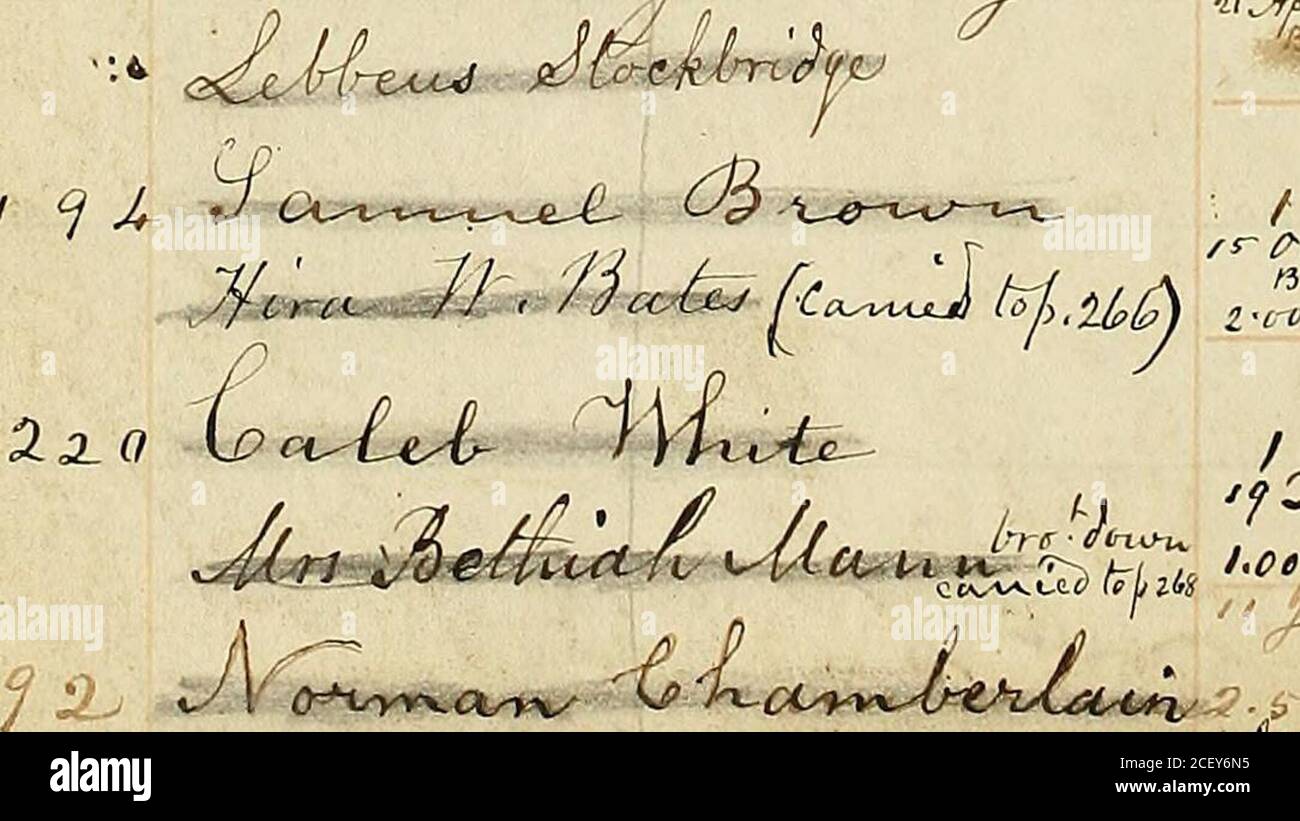 21 Ap
Lebbeus Stockbridge
94 Samuel Brown 1
15
Hira W. Bates (carried to p. 266) 2.00
220 Caleb White 1
19
Mrs Bethiah Mann brot. down 1.00
carried to p 268 11
92 Norman Chamberlain 2.5
alamy
Image ID: 2CEY6N5
www.alamy.com